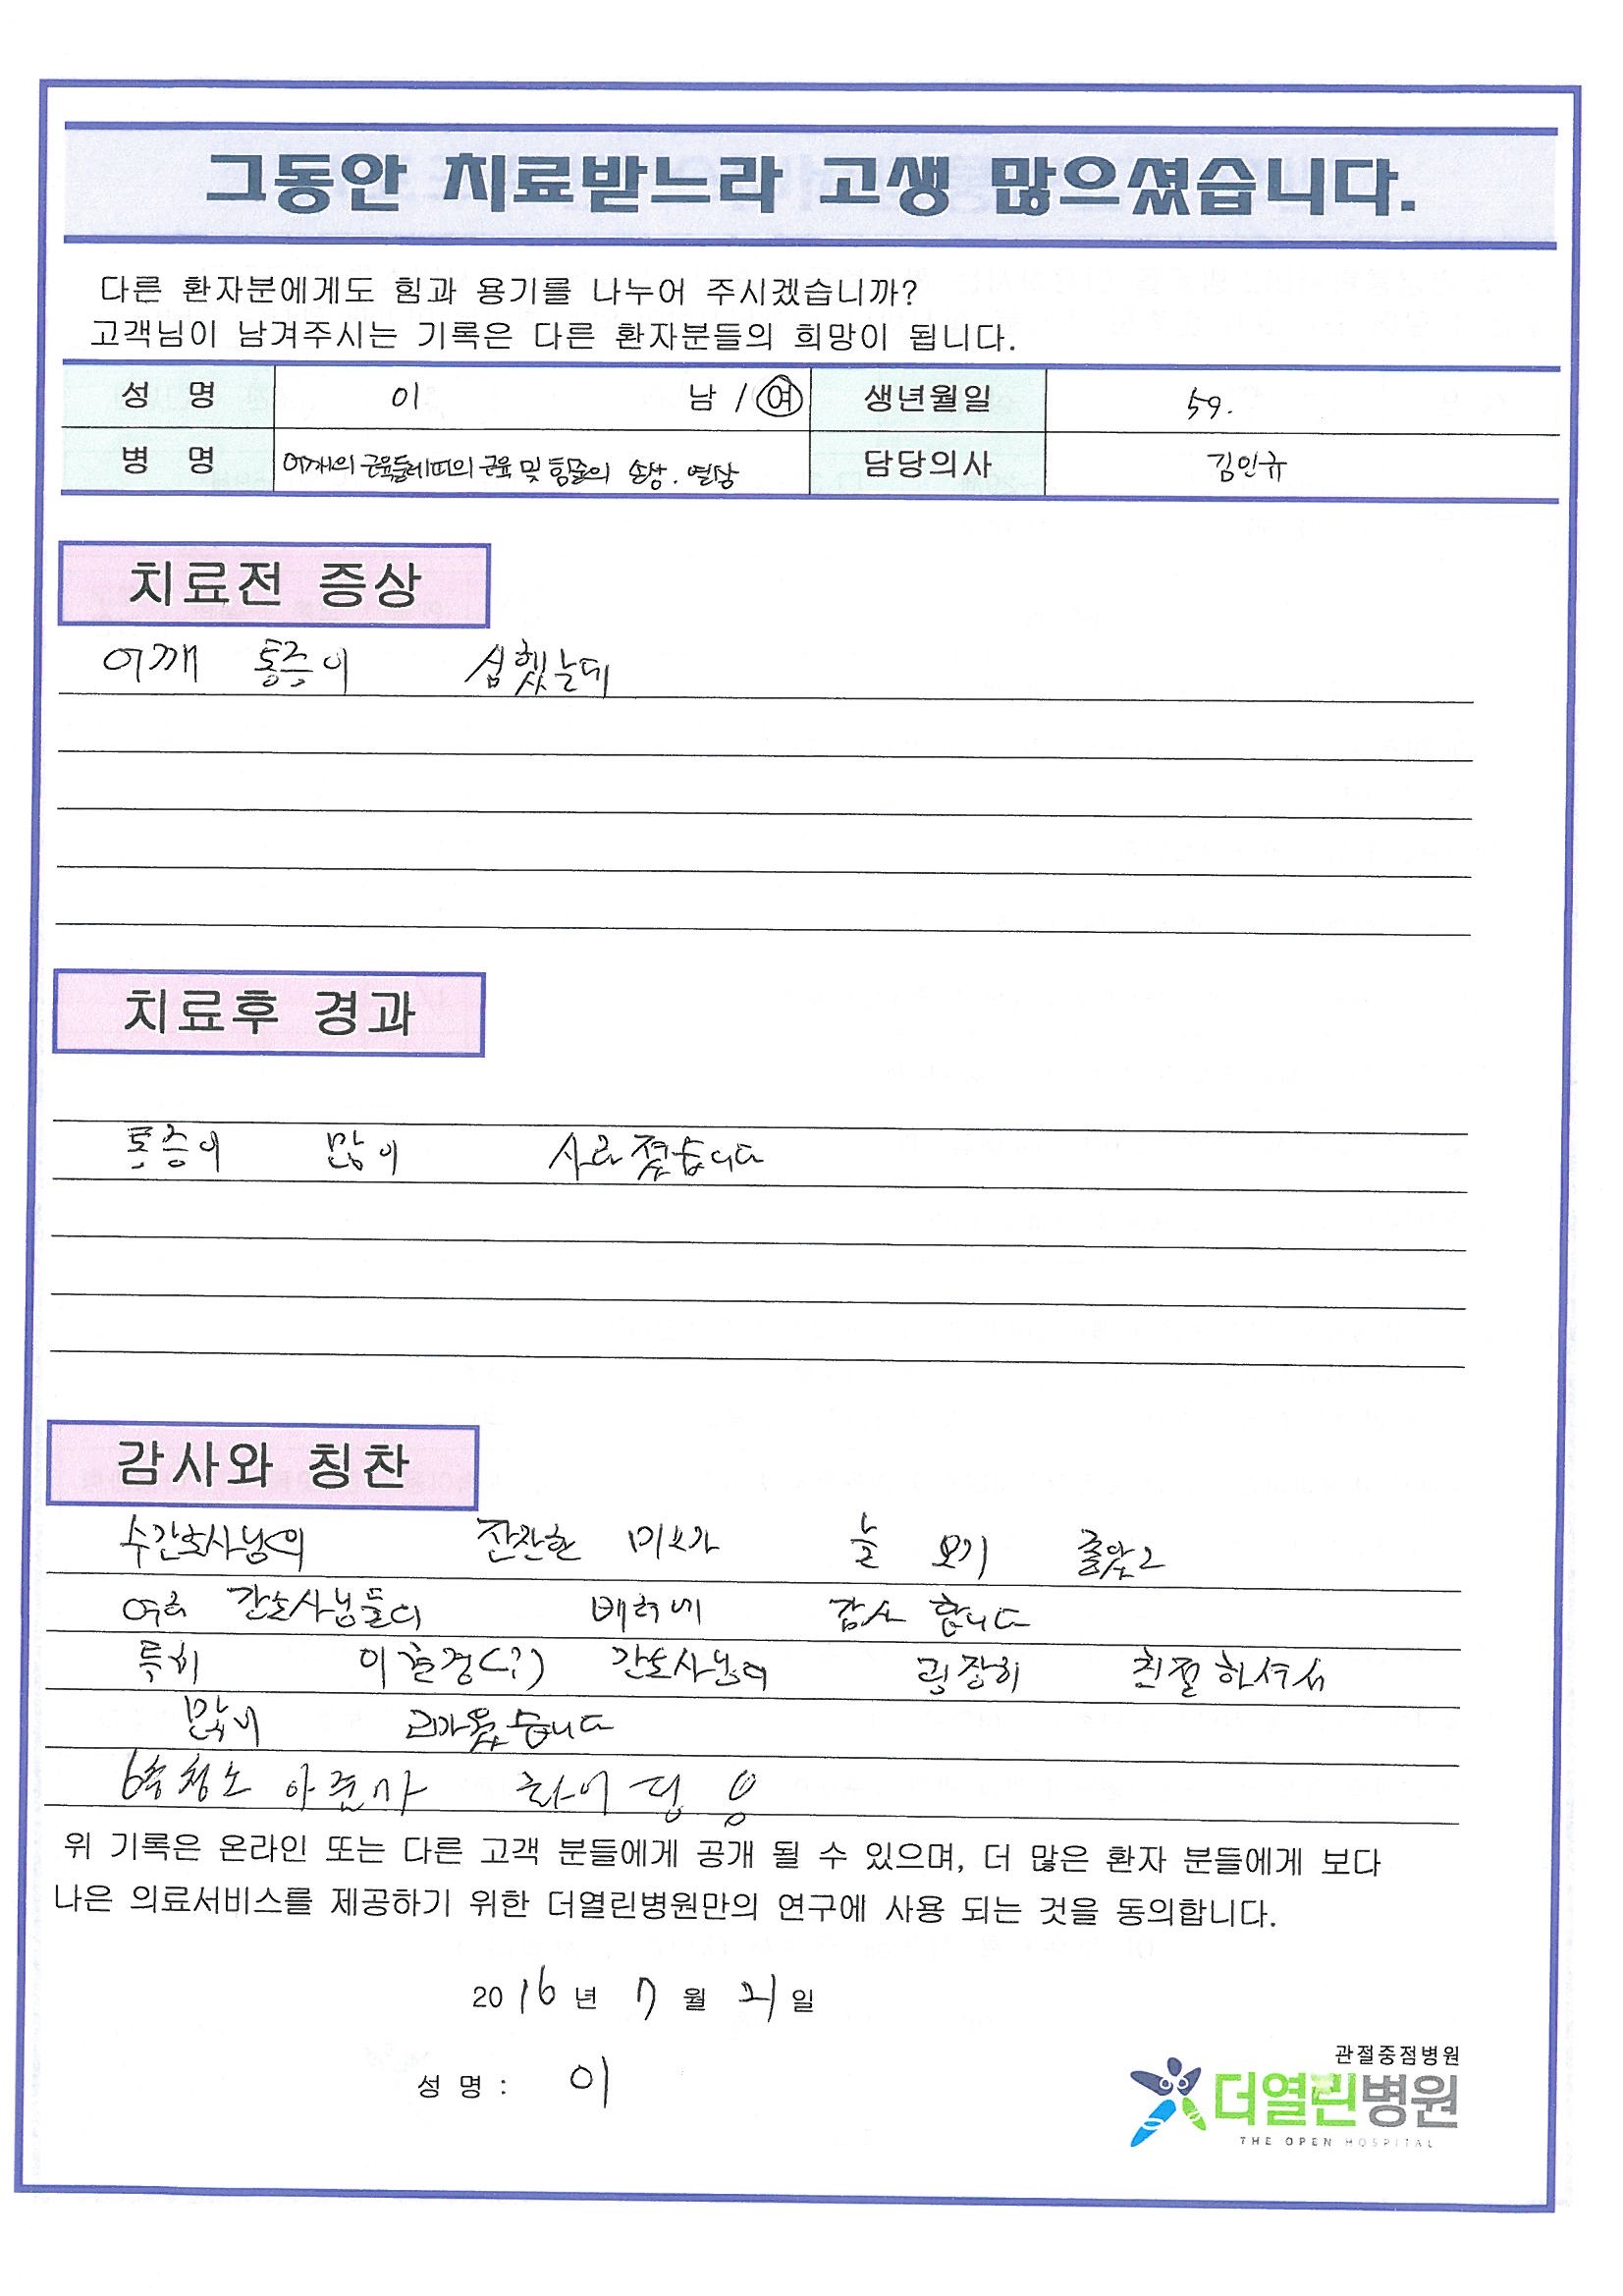 그동안 치료받느라 고생 많으셨습니다.
다른 환자분에게도 힘과 용기를 나누어 주시겠습니까?
고객님이 남겨주시는 기록은 다른 환자분들의 희망이 됩니다.
성 명 이 남 / 여 생년월일 59.
병 명 어깨의 근육둘레띠의 근육 및 힘줄의 손상. 열상 담당의사 김인규
치료전 증상
어깨 통증이 심했는데
치료후 경과
통증이 많이 사라졌습니다
감사와 칭찬
수간호사님의 잔잔한 미소가 늘 보기 좋았고
여러 간호사님들의 배려에 감사 합니다
특히 이 경(?) 간호사님이 굉장히 친절하셔서
많이 습니다
6층 청소 아줌마 화이팅
위 기록은 온라인 또는 다른 고객 분들에게 공개 될 수 있으며, 더 많은 환자 분들에게 보다
나은 의료서비스를 제공하기 위한 더열린병원만의 연구에 사용 되는 것을 동의합니다.
2016 년 7 월 21 일
성 명 : 이
관절중점병원
더열린병원
THE OPEN HOSPITAL